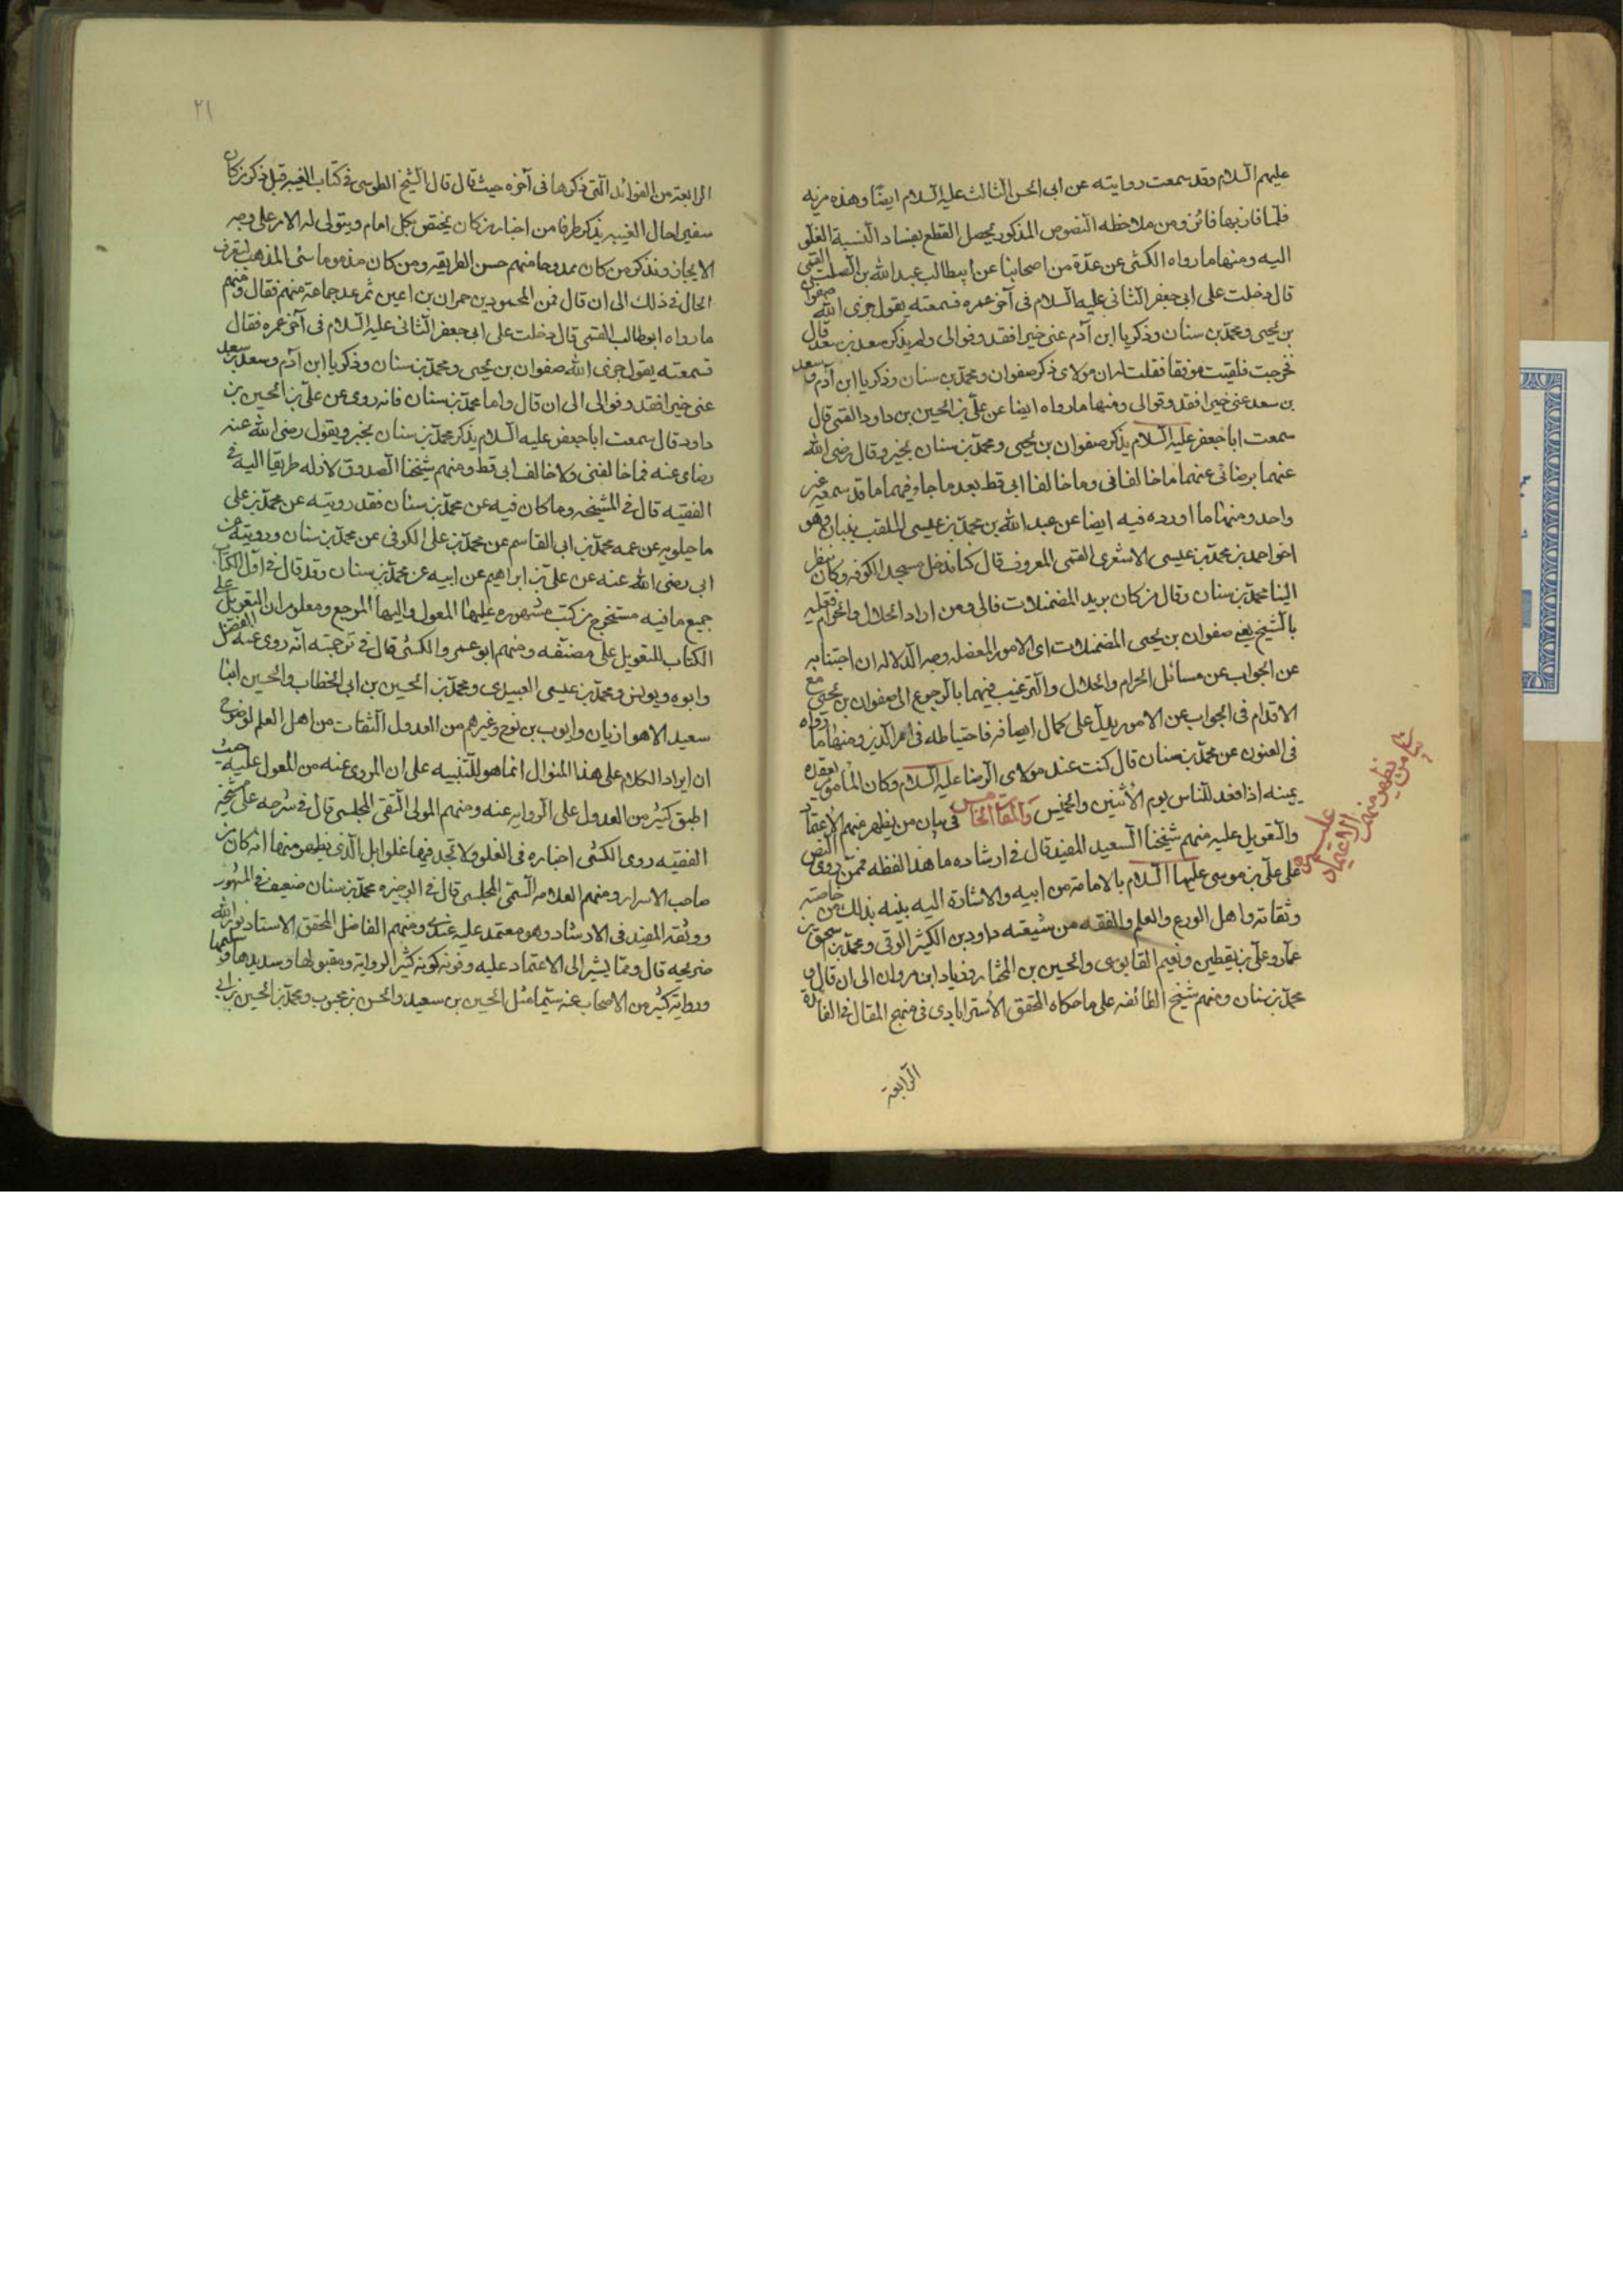 عليهم السلام وقد سمعت روايته عن ابى الحسن الثالث عليه السلام ايضا وهذه مزيه
قلما فاز بها فائز ومن ملاحظه النصوص المذكور يحصل القطع بفساد النسبة الغلو
اليه ومنها ما رواه الكشى عن عدة من اصحابنا عن ابيطالب عبد الله بن الصلت القمى
قال دخلت على ابى جعفر الثانى عليه السلام فى آخر عمره فسمعته يقول جزى الله صفوان
بن يحيى ومحمد بن سنان وزكريا ابن آدم عنى خيرا فقد وفوا لى ولم يذكر سعد بن سعد قال
فخرجت فلقيت موفقا فقلت له ان مولاى ذكر صفوان ومحمد بن سنان وزكريا ابن آدم و سعد
بن سعد عنى خيرا فقد وفوا لى ومنها ما رواه ايضا عن على بن الحسين بن داود القمى قال
سمعت ابا جعفر عليه السلام يذكر صفوان بن يحيى ومحمد بن سنان بخير وقال رضى الله
عنهما برضائى عنهما ما خالفانى وما خالفا ابى قط بعد ما جاء فيهما ما قد سمعه غير
واحد ومنها ما اورده فيه ايضا عن عبد الله بن محمد بن عيسى الملقب ببنان وهو
اخو احمد بن محمد بن عيسى الاشعرى القمى المعروف قال كنا ندخل مسجد الكوفه وكان ينظر
الينا محمد بن سنان وقال من كان يريد المضمئلات فالى ومن اراد الحلال والحرام فعليه
بالشيخ يعنى صفوان بن يحيى المضمئلات اى الامور المعضله وجه الدلاله ان اجتنابه
عن الجواب عن مسائل الحرام والحلال والترغيب فيهما بالرجوع الى صفوان بن يحيى مع
الاقدام فى الجواب عن الامور يدل على كمال انصافه واحتياطه فى امر الدين ومنها ما رواه
فى العيون عن محمد بن سنان قال كنت عند مولاى الرضا عليه السلام وكان المأمون يقعده
يمينه اذا قعد للناس يوم الاثنين والخميس والمقام الخامس فى بيان من يظهر منهم الاعتماد
والتعويل عليه منهم شيخنا السعيد المفيد قال فى ارشاده ما هذا لفظه ممن روى النص
على على بن موسى عليهما السلام بالامامة من ابيه والاشارة اليه بنيه بذلك من خاصته
وثقاته واهل الورع والعلم والفقه من شيعته داود بن الكثير الرقى ومحمد بن اسحق بن
عمار وعلى بن يقطين ونعيم القابوسى والحسين بن المختار وزياد ابن مروان الى ان قال و
محمد بن سنان ومنهم شيخ الطائفه على ما حكاه المحقق الاسترابادى فى منهج المقال فى الفائدة
الرابعة
بيان من يظهر منهم الاعتماد
عليه
٢١
الرابعة من الفوائد التى ذكرها فى آخره حيث قال قال الشيخ الطوسى فى كتاب الغيبه قبل ذكر من كان
سفيرا حال الغيبه نذكر طرفا من اخبار من كان يختص بكل امام ويتولى له الامر على وجه
الايجاز ونذكر من كان ممدوحا منهم حسن الطريقه ومن كان مذموما سئى المذهب ليعرف
الحال فى ذلك الى ان قال فمن المحمودين حمران بن اعين ثم عد جماعة منهم فقال ومنهم
ما رواه ابو طالب القمى قال دخلت على ابى جعفر الثانى عليه السلام فى آخر عمره فقال
فسمعته يقول جزى الله صفوان بن يحيى ومحمد بن سنان وزكريا ابن آدم وسعد بن سعد
عنى خيرا فقد وفوا لى الى ان قال واما محمد بن سنان فانه روى عن على بن الحسين بن
داود قال سمعت ابا جعفر عليه السلام يذكر محمد بن سنان بخير ويقول رضى الله عنه
رضاى عنه فما خالفنى ولا خالف ابى قط ومنهم شيخنا الصدوق لان له طريقا اليه فى
الفقيه قال فى المشيخه وما كان فيه عن محمد بن سنان فقد رويته عن محمد بن على
ماجيلويه عن عمه محمد بن ابى القاسم عن محمد بن على الكوفى عن محمد بن سنان ورويته عن
ابى رضى الله عنه عن على بن ابراهيم عن ابيه عن محمد بن سنان وقد قال فى اول الكتاب
جميع ما فيه مستخرج من كتب مشهوره عليها المعول واليها المرجع ومعلوم ان التعويل على
الكتاب للتعويل على مصنفه ومنهم ابو عمرو الكشى قال فى ترجمته انه روى عنه الفضل
وابوه ويونس ومحمد بن عيسى العبيدى ومحمد بن الحسين بن ابى الخطاب والحسين ابنا
سعيد الاهوازيان وايوب بن نوح وغيرهم من العدول الثقات من اهل العلم لوضوح
ان ايراد الكلام على هذا المنوال انما هو للتنبيه على ان المروى عنه من المعول عليه حيث
اطبق كثير من العدول على الروايه عنه ومنهم المولى التقى المجلسى قال فى شرحه على مشيخة
الفقيه روى الكشى اخباره فى الغلو ولا تجد فيها غلوا بل الذى يظهر منها انه كان من
صاحب الاسرار ومنهم العلامه السمى المجلسى قال فى الوجيزه محمد بن سنان ضعيف فى المشهور
ووثقه المفيد فى الارشاد وهو معتمد عليه عندى ومنهم الفاضل المحقق الاستاد نور الله
ضريحه قال ومما يشير الى الاعتماد عليه وقوته كونه كثير الرواية ومقبولها وسديدها وسليمها
ورواية كثير من الاصحاب عنه سيما مثل الحسين بن سعيد والحسن بن محبوب ومحمد بن الحسين بن ابى